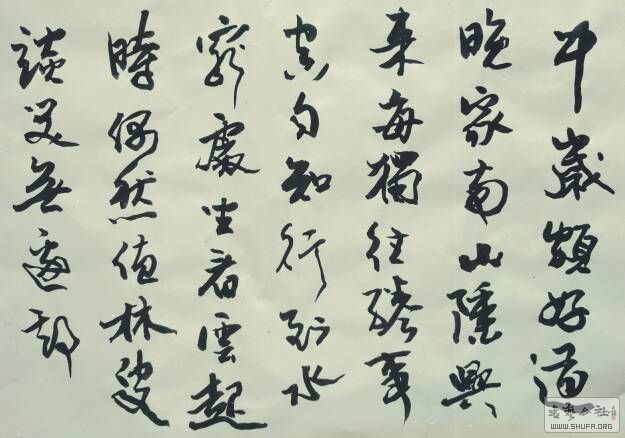 中歲頗好道
晚家南山陲興
来每獨往勝事
空自知行到水
窮處坐看雲起
時偶然值林叟
談笑無還期
書藝公社
WWW.SHUFA.ORG